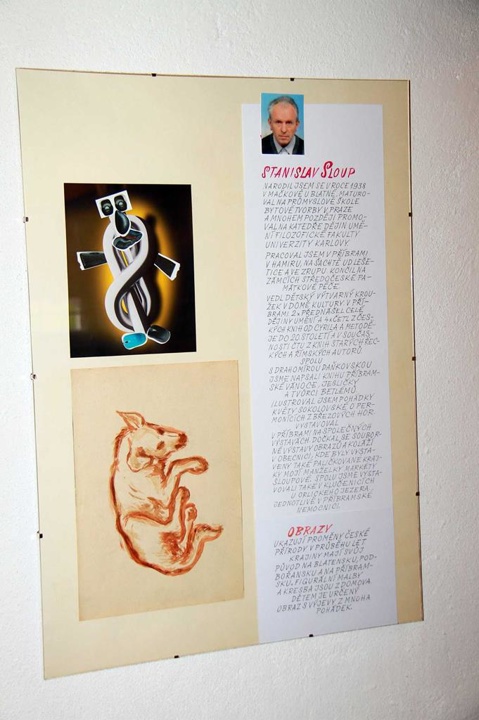 STANISLAV SLOUP
NARODIL JSEM SE V ROCE 1938
V MAČKOVĚ U BLATNÉ, MATURO-
VAL NA PRŮMYSLOVÉ ŠKOLE
BYTOVÉ TVORBY V PRAZE
A MNOHEM POZDĚJI PROMO-
VAL NA KATEDŘE DĚJIN UMĚ-
NÍ FILOZOFICKÉ FAKULTY
UNIVERZITY KARLOVY.
PRACOVAL JSEM V PŘÍBRAMI
V HAMIRU, NA ŠACHTĚ
TICE A VE ZRUPU. KONČIL NA
ZÁMCÍCH STŘEDOČESKÉ PA-
MÁTKOVÉ PÉČE.
VEDL DĚTSKÝ VÝTVARNÝ KROU-
ŽEK V DOMĚ KULTURY V PŘÍ-
BRAMI. 2x PŘEDNÁŠEL CELÉ
DĚJINY UMĚNÍ A 4x ČETL Z ČES-
KÝCH KNIH OD CYRILA A METODĚ-
JE DO 20. STOLETÍ A V SOUČAS-
NOSTI ČTU Z KNIH STARÝCH ŘEC-
KÝCH A ŘÍMSKÝCH AUTORŮ
SPOLU
S DRAHOMÍROU DAŇKOVSKOU
JSME NAPSALI KNIHU PŘÍBRAM-
SKÉ VÁNOCE, JESLIČKY
A TVŮRCI BETLÉMŮ.
ILUSTROVAL JSEM POHÁDKY
KVĚTY SOKOLOVSKÉ O PER-
MONÍCÍCH Z BŘEZOVÝCH HOR
VYSTAVOVAL
V PŘÍBRAMI NA SPOLEČNÝCH
VÝSTAVÁCH DOČKAL SE SOUBOR-
NÉ VÝSTAVY OBRAZŮ A KOLÁŽÍ
V OBECNICI, KDE BYLY VYSTA-
VENY TAKÉ PALIČKOVANÉ KRAJ-
KY MOJÍ MANŽELKY MARKÉTY
SLOUPOVÉ. SPOLU JSME VYSTA-
VOVALI TAKÉ V KLUČENICÍCH
U ORLICKÉHO JEZERA.
JEDNOTLIVĚ V PŘÍBRAMSKÉ
NEMOCNICI.
OBRAZY
UKAZUJÍ PROMĚNY ČESKÉ
PŘÍRODY V PRŮBĚHU LET
KRAJINY MAJÍ SVŮJ
PŮVOD NA BLATENSKU, POD-
BOŘANSKU A NA PŘÍBRAM-
SKU. FIGURÁLNÍ MALBY
A KRESBA JSOU Z DOMOVA
DĚTEM JE URČENÝ
OBRAZ S VÝJEVY Z MNOHA
POHÁDEK.